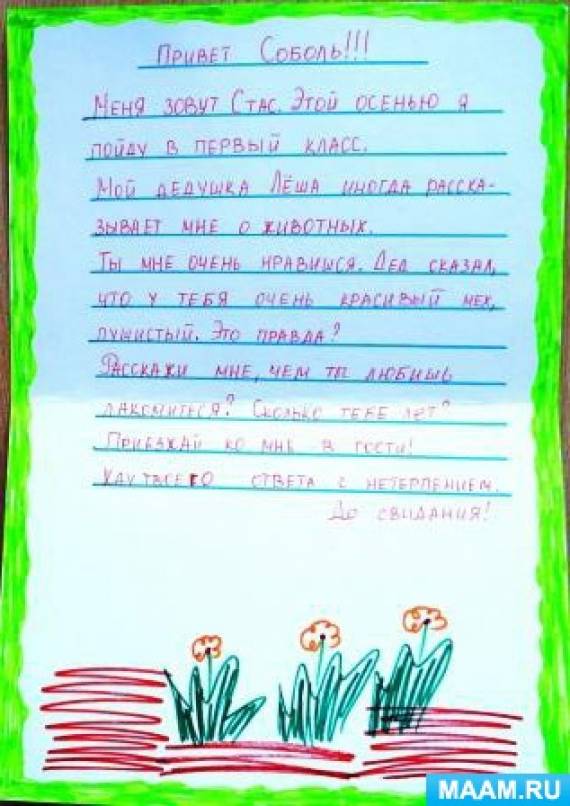 Привет Соболь!!!
Меня зовут Стас. Этой осенью я
пойду в первый класс.
Мой дедушка Лёша иногда расска-
зывает мне о животных.
Ты мне очень нравишся. Дед сказал,
что у тебя очень красивый мех,
пушистый. Это правда?
Расскажи мне, чем ты любишь
лакомиться? Сколько тебе лет?
Приезжай ко мне в гости!
Жду твоего ответа с нетерпением.
До свидания!
MAAM.RU